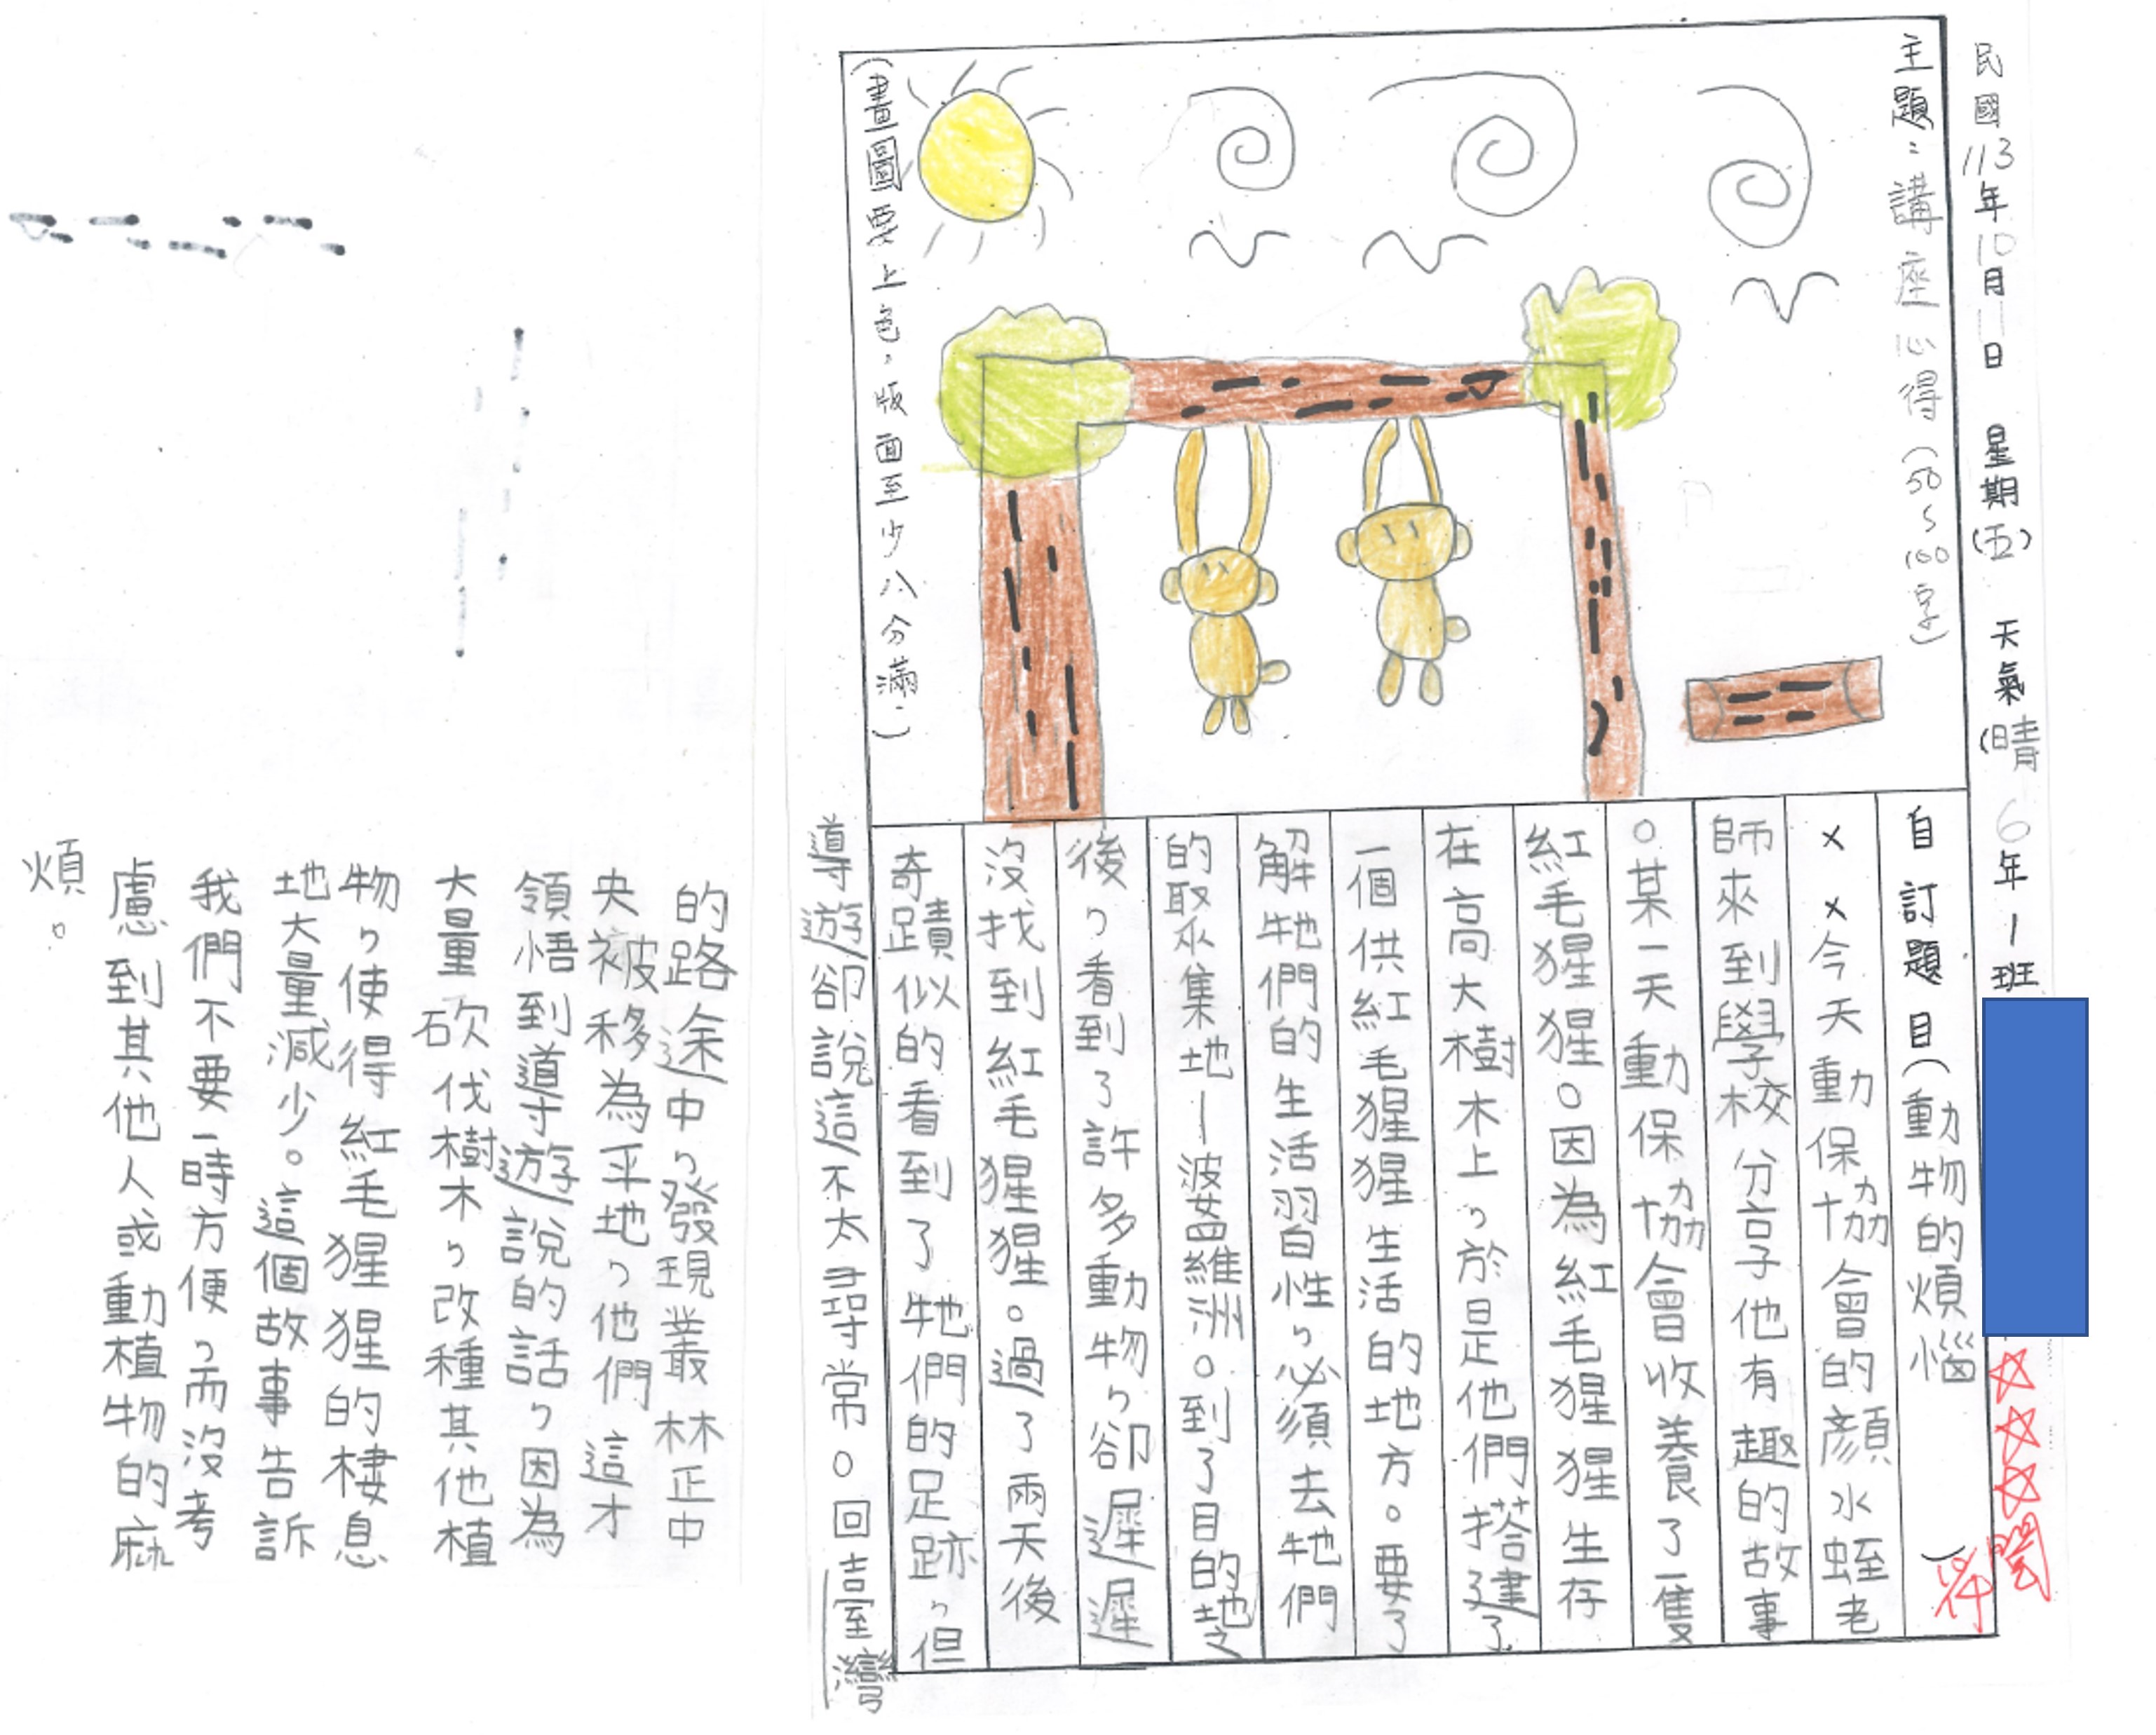 民國113年10月11日 星期(五) 天氣(晴 6年1班
主題：講座心得(50~100字)
(畫圖要上色，版面至少八分滿.)
自訂題目(動物的煩惱)
××今天動保協會的顏水蛭老
師來到學校分享他有趣的故事
。某一天動保協會收養了一隻
紅毛猩猩。因為紅毛猩猩生存
在高大樹木上，於是他們搭建了
一個供紅毛猩猩生活的地方。要了
解牠們的生活習性，必須去牠們
的聚集地—婆羅維洲。到了目的地之
後，看到了許多動物，卻遲遲
沒找到紅毛猩猩。過了兩天後
奇蹟似的看到了牠們的足跡，但
導遊卻說這不太尋常。回臺灣
的路途中，發現叢林正中
央被移為平地，他們這才
領悟到導遊說的話，因為
大量砍伐樹木，改種其他植
物，使得紅毛猩猩的棲息
地大量減少。這個故事告訴
我們不要一時方便，而沒考
慮到其他人或動植物的麻
煩。